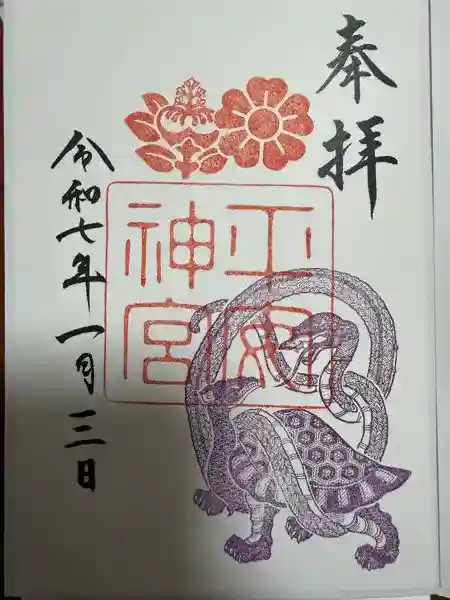 奉拝
平安
神宮
令和七年一月三日